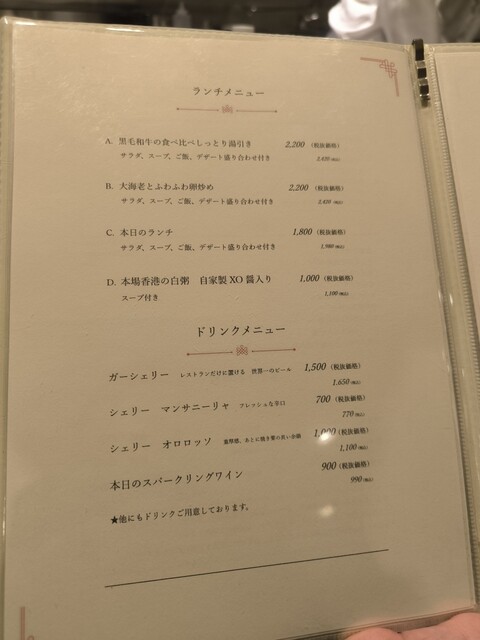 ランチメニュー
A. 黒毛和牛の食べ比べしっとり湯引き 2,200 （税抜価格）
サラダ、スープ、ご飯、デザート盛り合わせ付き 2,420 (税込)
B. 大海老とふわふわ卵炒め 2,200 （税抜価格）
サラダ、スープ、ご飯、デザート盛り合わせ付き 2,420 (税込)
C. 本日のランチ 1,800 （税抜価格）
サラダ、スープ、ご飯、デザート盛り合わせ付き 1,980 (税込)
D. 本場香港の白粥 自家製 XO 醤入り 1,000 （税抜価格）
スープ付き 1,100 (税込)
ドリンクメニュー
ガーシェリー レストランだけに置ける 世界一のビール 1,500 （税抜価格）
1,650 (税込)
シェリー マンサニーリャ フレッシュな辛口 700 （税抜価格）
770 (税込)
シェリー オロロッソ 1,000 （税抜価格）
1,100 (税込)
本日のスパークリングワイン 900 （税抜価格）
990 (税込)
★他にもドリンクご用意しております。